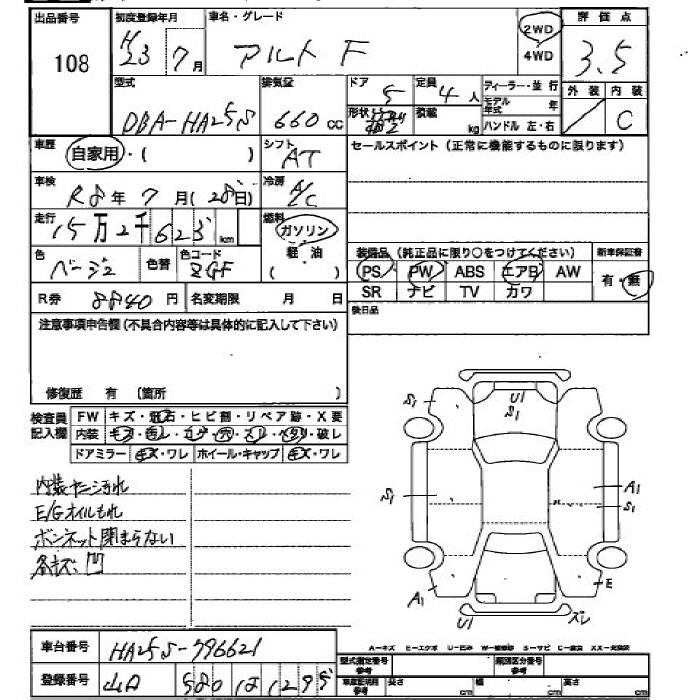 出品番号 初度登録年月 車名・グレード 2WD 4WD 評価点
108 H23 年 7月 アルト F 3.5
型式 排気量 ドア 定員 ディーラー・並行 外装 内装
DBA-HA25S 660 cc 5 4人 モデル年式 年 C
形状 積載 kg ハンドル 左・右
車歴 自家用・( ) シフト AT セールスポイント (正常に機能するものに限ります)
車検 R8年 7月(28日) 冷房 A/C
走行 15万2千623 km 燃料 ガソリン 軽油 ( )
色 ベージュ 色替 色コード ZGF
装備品 (純正品に限り○をつけてください) 新車保証書
PS PW ABS エアB AW 有・無
SR ナビ TV カワ
R券 8840円 名変期限 月 日 後日品
注意事項申告欄 (不具合内容等は具体的に記入して下さい)
修復歴 有 (箇所 )
検査員記入欄 FW キズ・飛石・ヒビ割・リペア跡・X変
内装 キズ・汚レ・コゲ・穴・スレ・ヘタリ・破レ
ドアミラー キズ・ワレ ホイール・キャップ キズ・ワレ
内装ヤニ汚れ
E/Gオイルもれ
ボンネット閉まらない
各キズ凹
S1 U1 S1
S1 A1 S1
A1 E
U1 ズレ
A-キズ E-エクボ U-凹み W-補修跡 S-サビ C-腐食 XX-交換済
車台番号 HA25S-796621
登録番号 580 1295
型式指定番号 参考 類別区分番号 参考
車庫証明用 参考 長さ cm 幅 cm 高さ cm